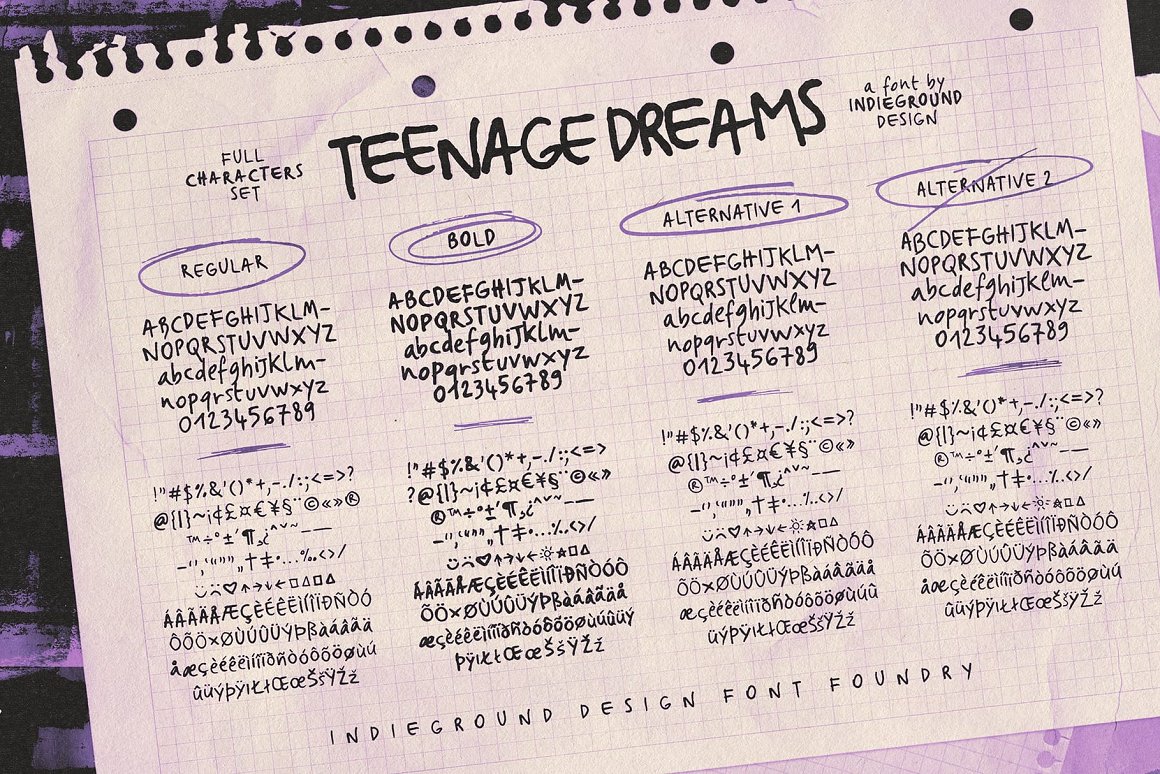 FULL
CHARACTERS
SET
TEENAGE DREAMS
a font by
INDIEGROUND
DESIGN
REGULAR
ABCDEFGHIJKLM-
NOPQRSTUVWXYZ
abcdefghijklm-
nopqrstuvwxyz
0123456789
!"#$%&'()*+,-./:;<=>?
@{|}~¡¢£¤€¥§¨©«»®
™÷°±´¶¸¿^ˇ~–—
–‘’‚“”„†‡•…‰‹›/
ÁÂÃÄÅÆÇÈÉÊËÌÍÎÏÐÑÒÓ
ÔÕÖ×ØÙÚÛÜÝÞßàáâãä
åæçèéêëìíîïðñòóôõöøùú
ûüýþÿıŁłŒœŠšŸŽž
BOLD
ABCDEFGHIJKLM-
NOPQRSTUVWXYZ
abcdefghijklm-
nopqrstuvwxyz
0123456789
!"#$%&'()*+,-./:;<=>
?@{|}~¡¢£¤€¥§¨©«»
®™÷°±´¶¸¿^ˇ~–—
–‘’‚“”„†‡•…‰‹›/
ÁÂÃÄÅÆÇÈÉÊËÌÍÎÏÐÑÒÓÔ
ÕÖ×ØÙÚÛÜÝÞßàáâãäå
æçèéêëìíîïðñòóôõöøùúûüý
þÿıŁłŒœŠšŸŽž
ALTERNATIVE 1
ABCDEFGHIJKLM-
NOPQRSTUVWXYZ
abcdefghijklm-
nopqrstuvwxyz
0123456789
!"#$%&'()*+,-./:;<=>?
@{|}~¡¢£¤€¥§¨©«»
®™÷°±´¶¸¿^ˇ~–—
–‘’‚“”„†‡•…‰‹›/
ÁÂÃÄÅÆÇÈÉÊËÌÍÎÏÐÑÒÓÔ
ÕÖ×ØÙÚÛÜÝÞßàáâãäå
æçèéêëìíîïðñòóôõöøùúû
üýþÿıŁłŒœŠšŸŽž
ALTERNATIVE 2
ABCDEFGHIJKLM-
NOPQRSTUVWXYZ
abcdefghijklm-
nopqrstuvwxyz
0123456789
!"#$%&'()*+,-./:;<=>?
@{|}~¡¢£¤€¥§¨©«»
®™÷°±´¶¸¿^ˇ~–—
–‘’‚“”„†‡•…‰‹›/
ÁÂÃÄÅÆÇÈÉÊËÌÍÎÏÐÑÒÓÔ
ÕÖ×ØÙÚÛÜÝÞßàáâãä
åæçèéêëìíîïðñòóôõöøùú
ûüýþÿıŁłŒœŠšŸŽž
INDIEGROUND DESIGN FONT FOUNDRY